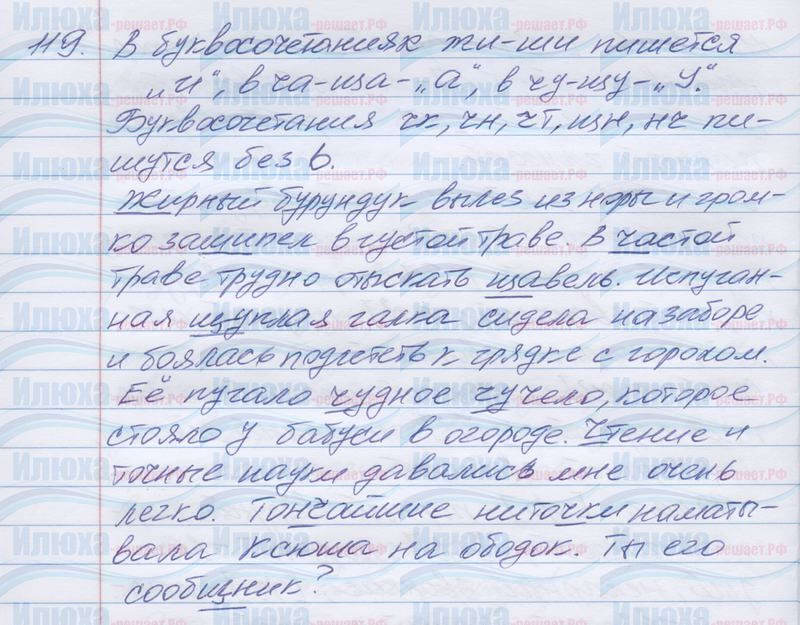 119. В буквосочетаниях жи-ши пишется
„и“, в ча-ща-„а“, в чу-щу-„у“.
Буквосочетания чк, чн, чт, щн, нч пи-
шутся без ь.
Жирный бурундук вылез из норы и гром-
ко зашипел в густой траве. В частой
траве трудно отыскать щавель. Испуган-
ная щуплая галка сидела на заборе
и боялась подлететь к грядке с горохом.
Её пугало чудное чучело, которое
стояло у бабуси в огороде. Чтение и
точные науки давались мне очень
легко. Тончайшие ниточки наматы-
вала Ксюша на ободок. Ты его
сообщник?
Илюха-решает.РФ